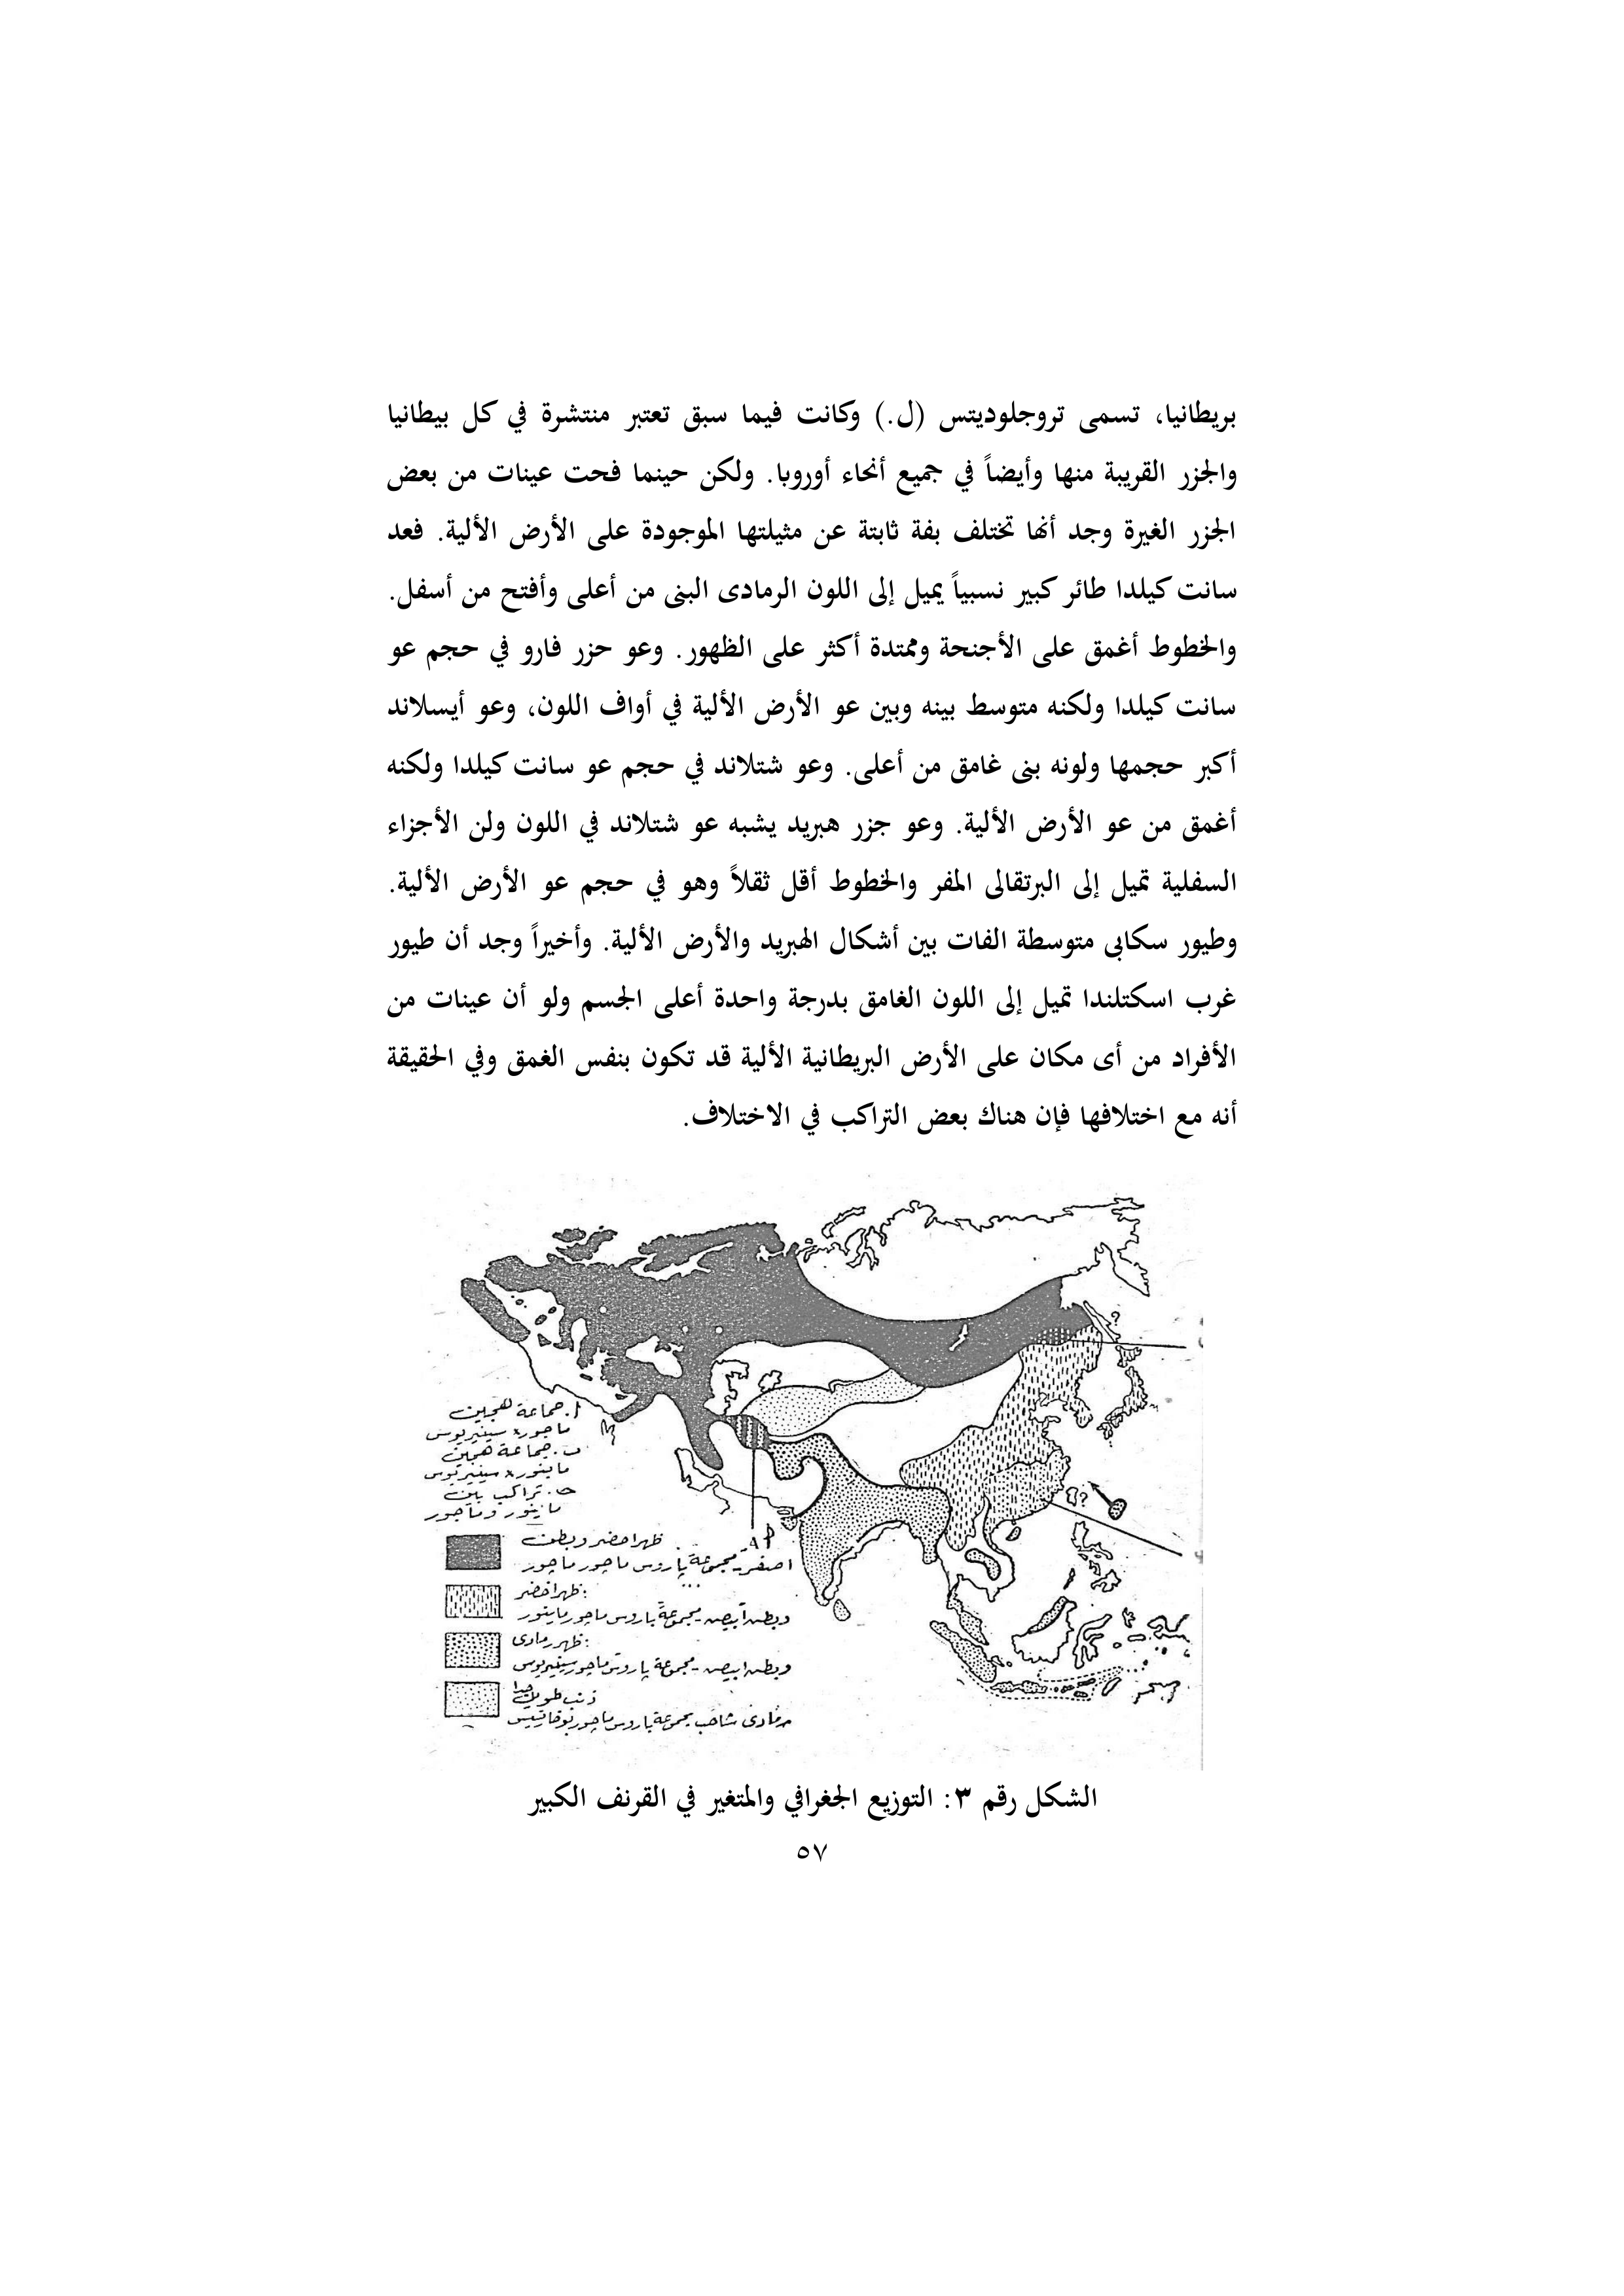 بريطانيا، تسمى تروجلوديتس (ل.) وكانت فيما سبق تعتبر منتشرة في كل بيطانيا
والجزر القريبة منها وأيضاً في جميع أنحاء أوروبا. ولكن حينما فحت عينات من بعض
الجزر الغيرة وجد أنها تختلف بفة ثابتة عن مثيلتها الموجودة على الأرض الألية. فعد
سانت كيلدا طائر كبير نسبياً يميل إلى اللون الرمادى البنى من أعلى وأفتح من أسفل.
والخطوط أغمق على الأجنحة وممتدة أكثر على الظهور. وعو حزر فارو في حجم عو
سانت كيلدا ولكنه متوسط بينه وبين عو الأرض الألية في أواف اللون، وعو أيسلاند
أكبر حجمها ولونه بنى غامق من أعلى. وعو شتلاند في حجم عو سانت كيلدا ولكنه
أغمق من عو الأرض الألية. وعو جزر هبريد يشبه عو شتلاند في اللون ولن الأجزاء
السفلية تميل إلى البرتقالى المفر والخطوط أقل ثقلاً وهو في حجم عو الأرض الألية.
وطيور سكابى متوسطة الفات بين أشكال الهبريد والأرض الألية. وأخيراً وجد أن طيور
غرب اسكتلندا تميل إلى اللون الغامق بدرجة واحدة أعلى الجسم ولو أن عينات من
الأفراد من أى مكان على الأرض البريطانية الألية قد تكون بنفس الغمق وفي الحقيقة
أنه مع اختلافها فإن هناك بعض التراكب في الاختلاف.
أ. جماعة هجين
ماجور × سينيريوس
ب. جماعة هجين
ماينور × سينيريوس
حـ. تراكب بين
ماينور وماجور
ظهر اخضر وبطن
اصفر - مجموعة پاروس ماجور ماجور
ظهر اخضر:
وبطن أبيض - مجموعة باروس ماجور ماينور
ظهر رمادى:
وبطن ابيض - مجموعة پاروس ماجور سينيريوس
ذنب طويل جدا
رمادى شاحب مجموعة پاروس ماجور
الشكل رقم ٣: التوزيع الجغرافي والمتغير في القرنف الكبير
٥٧